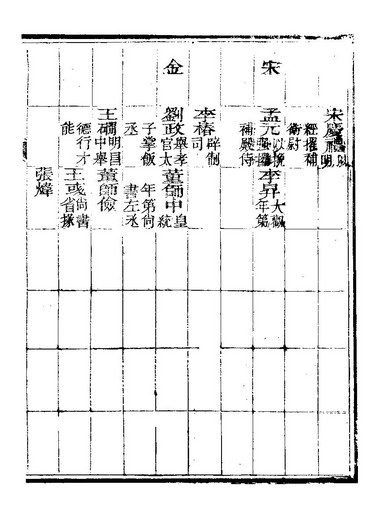 宋慶禮以明
經擢補
衛尉
宋
孟元以挽李昇大觀
補殿侍年第
李椿辟制
司
金
劉政舉孝董師中皇
官太統
子掌飯年第尚
丞書左丞
王磵明昌董師儉
中舉
德行才王彧尚書
能省掾
張煒